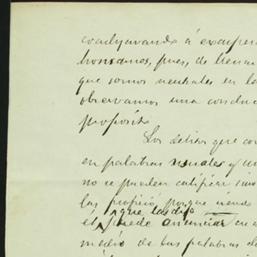 coadyuvando á exasper
honramos, pues, de llenar
que somos neutrales en la
observamos una conduc
propósito
Los delitos que co
en palabras usuales y
no se pueden calificar
las profirió, porque
que las dijo
él puede enunciar en
medio de las palabras d